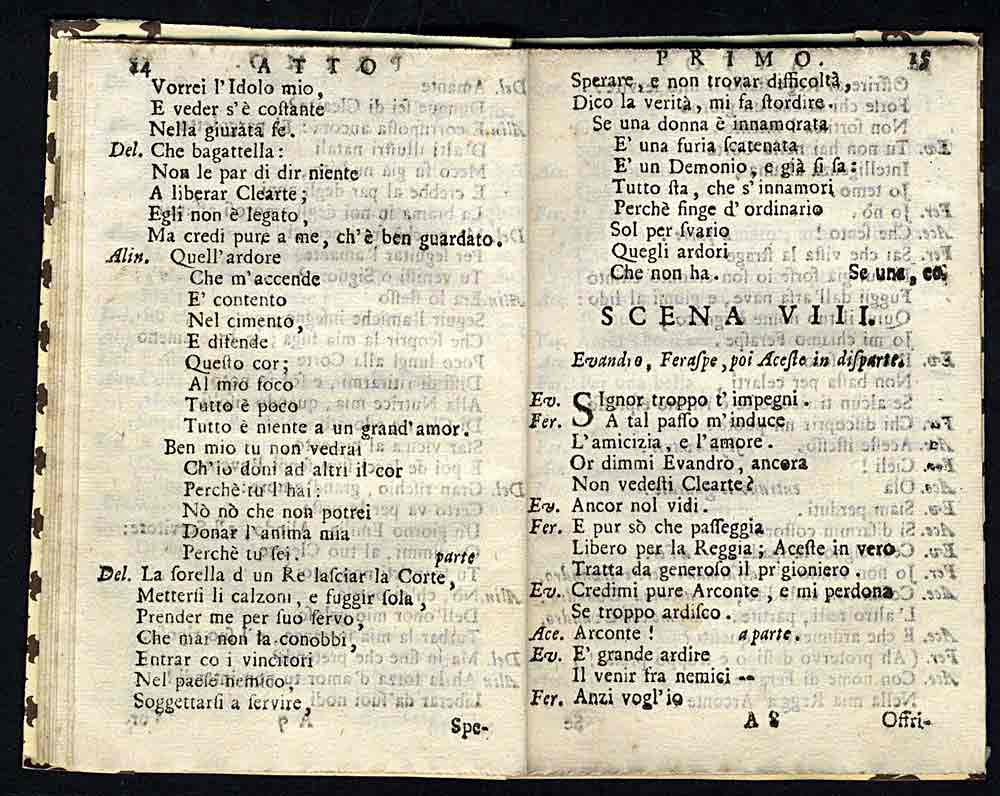 14 ATTO
Vorrei l'Idolo mio,
E veder s'è coſtante
Nella giurata fe.
Del. Che bagattella:
Non le par di dir niente
A liberar Clearte;
Egli non è legato,
Ma credi pure a me, ch'è ben guardato.
Alin. Quell'ardore
Che m'accende
E' contento
Nel cimento,
E difende
Queſto cor;
Al mio foco
Tutto è poco
Tutto è niente a un grand'amor.
Ben mio tu non vedrai
Ch'io doni ad altri il cor
Perchè tu l'hai:
Nò nò che non potrei
Donar l'anima mia
Perchè tu ſei. parte
Del. La ſorella d un Re laſciar la Corte,
Metterſi li calzoni, e fuggir ſola,
Prender me per ſuo ſervo,
Che mai non la conobbi,
Entrar co i vincitori
Nel paeſe nemico,
Soggettarſi a ſervire,
Spe-
PRIMO. 15
Sperare, e non trovar difficoltà,
Dico la verità, mi fa ſtordire.
Se una donna è innamorata
E' una furia ſcatenata
E' un Demonio, e già ſi ſa:
Tutto ſta, che s'innamori
Perchè finge d'ordinario
Sol per ſvario
Quegli ardori
Che non ha. Se una, ec.
SCENA VIII.
Evandro, Feraſpe, poi Aceſte in diſparte.
Ev. SIgnor troppo t'impegni.
Fer. A tal paſſo m'induce
L'amicizia, e l'amore.
Or dimmi Evandro, ancora
Non vedeſti Clearte?
Ev. Ancor nol vidi.
Fer. E pur sò che paſſeggia
Libero per la Reggia; Aceſte in vero
Tratta da generoſo il prigioniero.
Ev. Credimi pure Arconte, e mi perdona
Se troppo ardiſco.
Ace. Arconte! a parte.
Ev. E' grande ardire
Il venir fra nemici --
Fer. Anzi vogl'io
A 8 Offri-